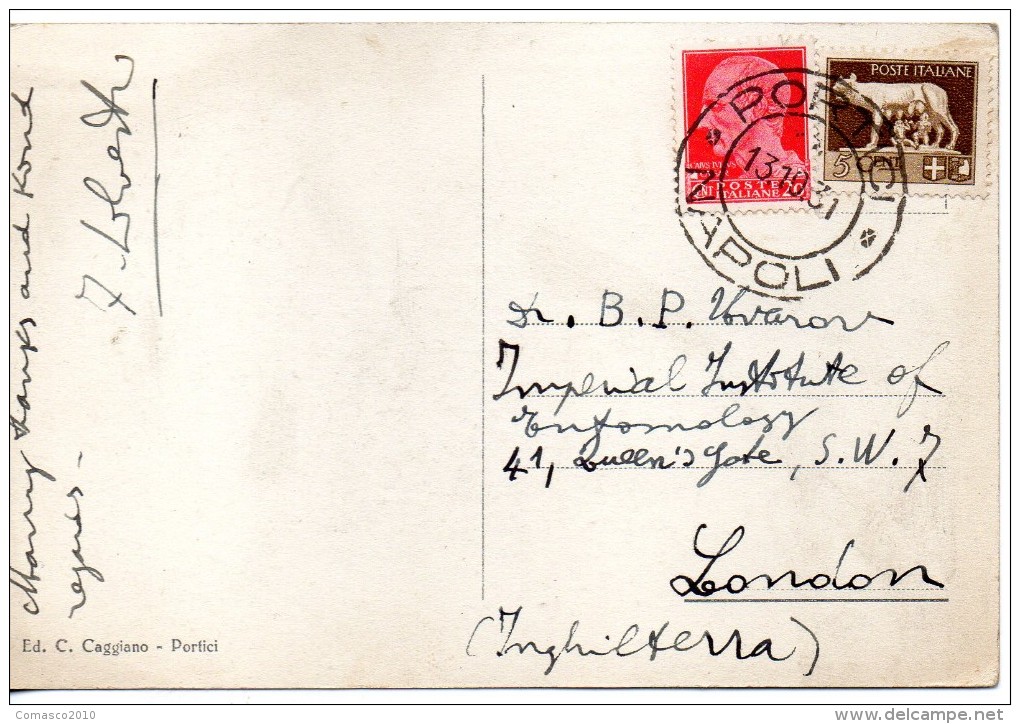 Many thanks and kind
regards -
Ed. C. Caggiano - Portici
POSTE
ITALIANE
20
POSTE ITALIANE
5 CENT
PORTICI
13.10.31
NAPOLI
Dr. B. P. Uvarov
Imperial Institute of
Entomology
41, Queen's Gate, S. W. 7
London
(Inghilterra)
Comasco2010
www.delcampe.net